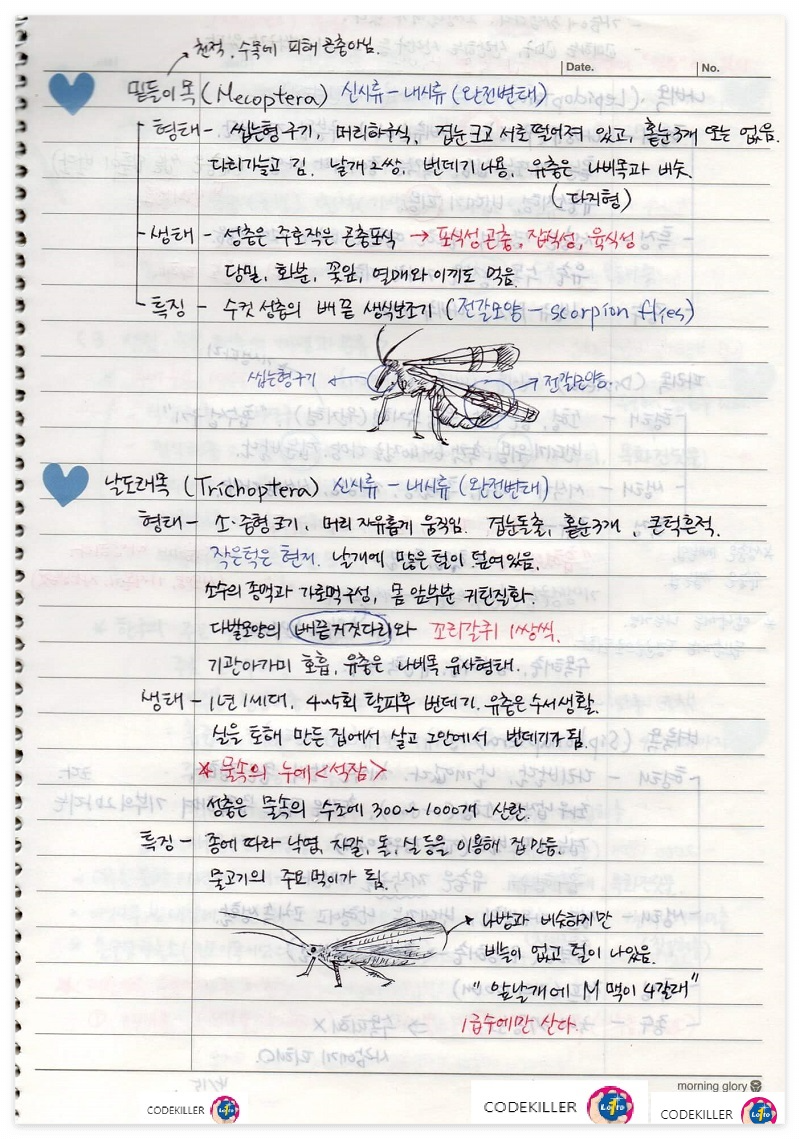 천적, 수목에 피해 곤충아님.
Date. No.
밑들이목 (Mecoptera) 신시류 - 내시류 (완전변태)
형태 - 씹는형 구기, 머리하구식, 겹눈 크고 서로 떨어져 있고, 홑눈 3개 또는 없음.
다리가늘고 김. 날개 2쌍, 번데기 나용, 유충은 나비목과 비슷.
(다지형)
생태 - 성충은 주로작은 곤충포식 → 포식성곤충, 잡식성, 육식성
당밀, 화분, 꽃잎, 열매와 이끼도 먹음.
특징 - 수컷 성충의 배 끝 생식보조기 (전갈모양 - scorpion flies)
씹는형구기
전갈모양.
날도래목 (Trichoptera) 신시류 - 내시류 (완전변태)
형태 - 소·중형크기, 머리 자유롭게 움직임. 겹눈돌출, 홑눈3개, 큰턱흔적.
작은턱은 현저. 날개에 많은 털이 덮여있음.
소수의 종맥과 가로맥구성, 몸 앞부분 키틴질화.
다발모양의 배끝거짓다리와 꼬리갈퀴 1쌍씩.
기관아가미 호흡, 유충은 나비목 유사형태.
생태 - 1년 1세대, 4~5회 탈피후 번데기. 유충은 수서생활.
실을 토해 만든 집에서 살고 그안에서 번데기가 됨.
* 물속의 누에 <석잠>
성충은 물속의 수초에 300~1000개 산란.
특징 - 종에 따라 낙엽, 자갈, 돌, 실 등을 이용해 집만듬.
물고기의 주요먹이가 됨.
나방과 비슷하지만
비늘이 없고 털이 나있음.
" 앞날개에 M 맥이 4갈래"
1급수에만 산다.
morning glory
CODEKILLER
CODEKILLER
CODEKILLER